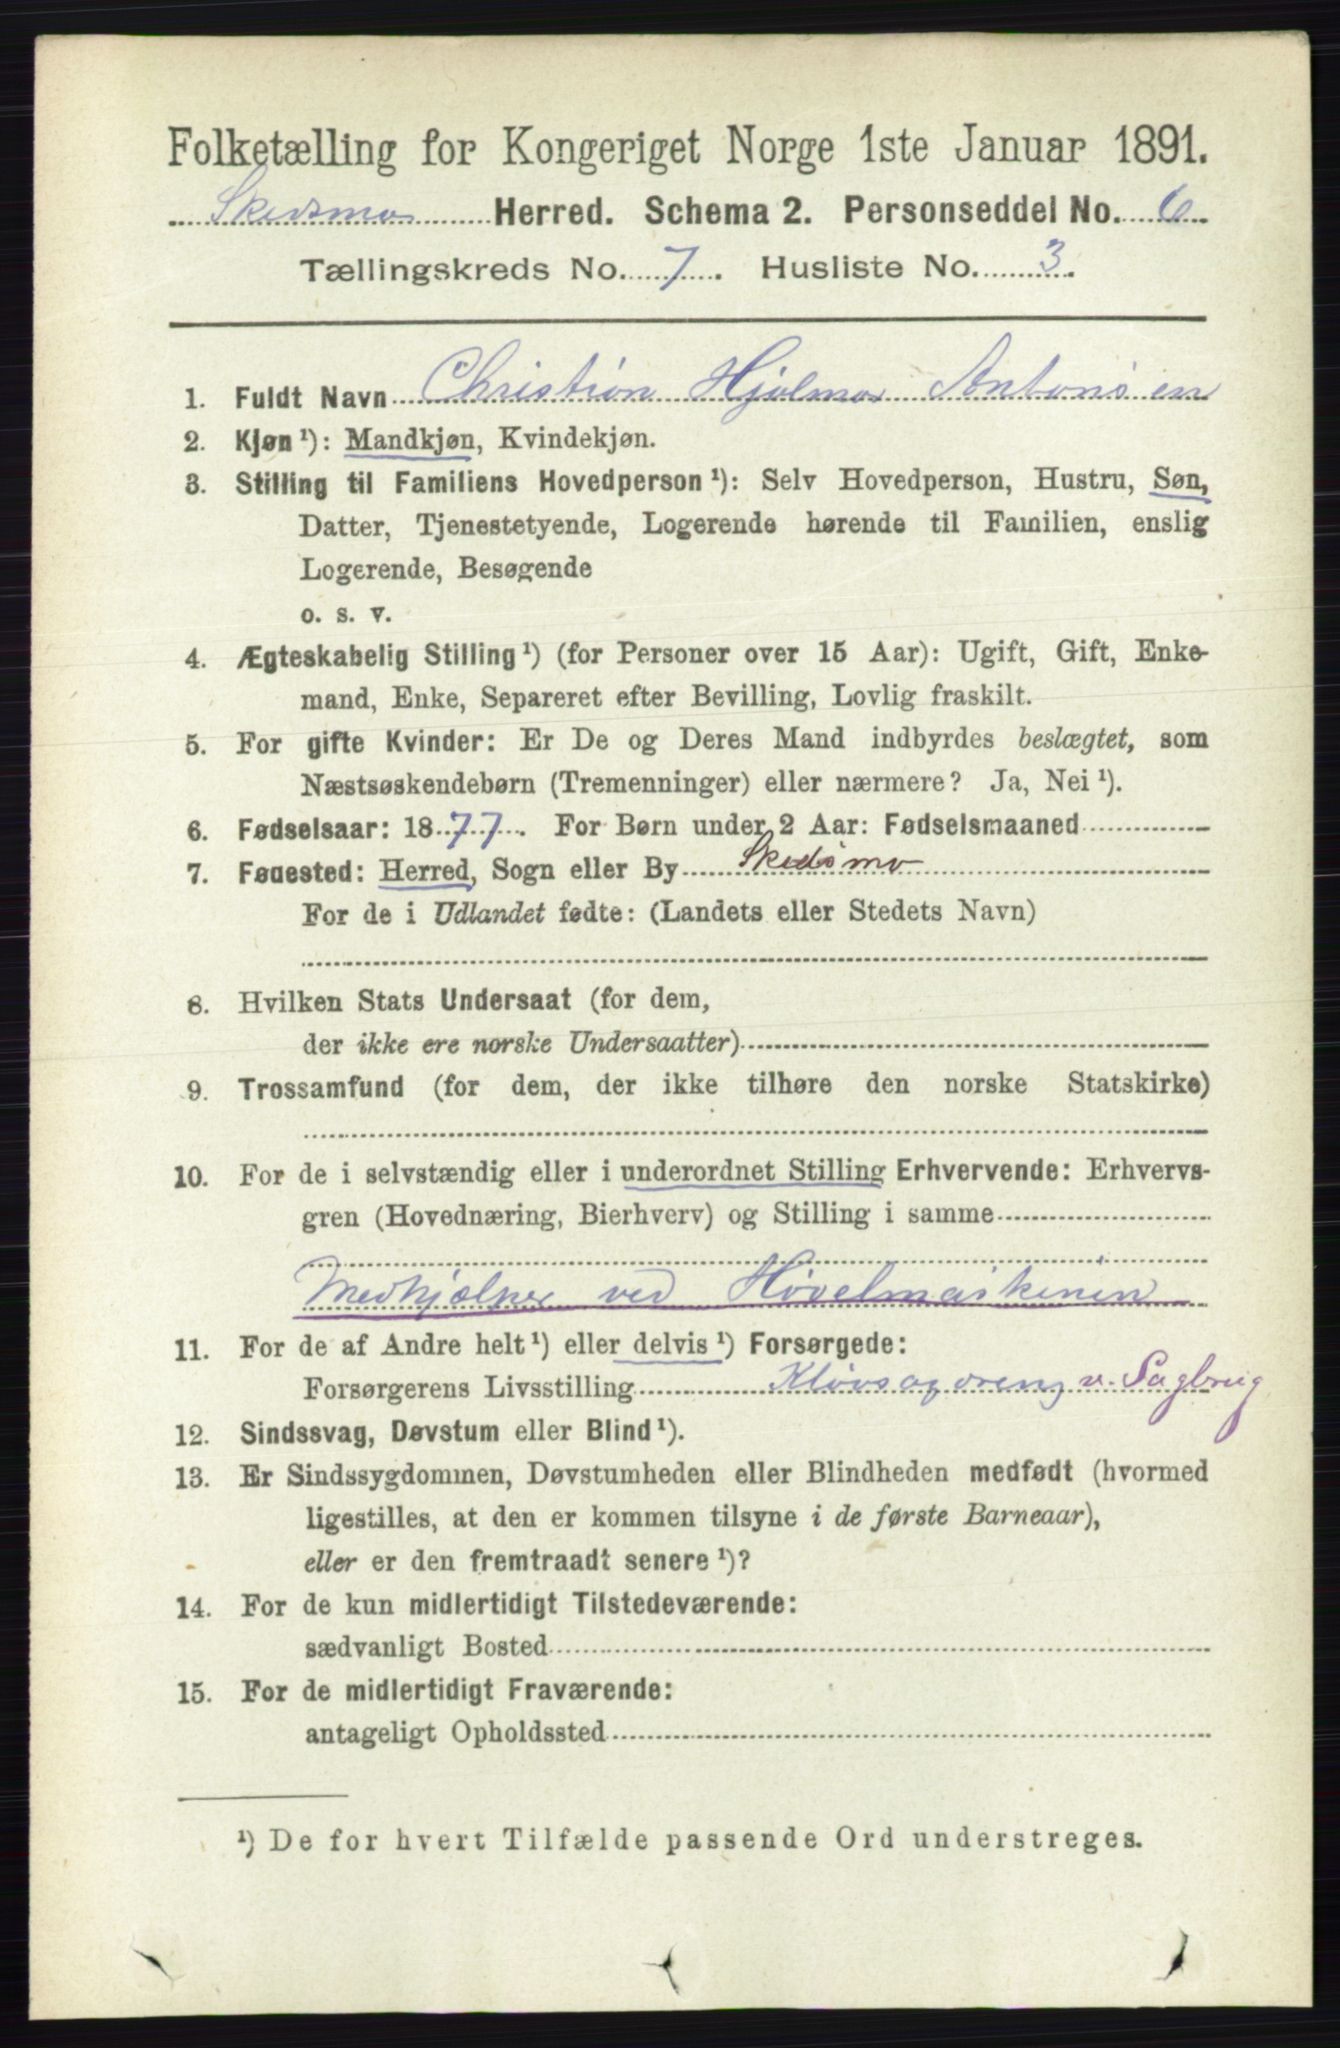 Folketælling for Kongeriget Norge 1ste Januar 1891.
Skedsmo Herred. Schema 2. Personseddel No. 6.
Tællingskreds No. 7. Husliste No. 3.
1. Fuldt Navn Christian Hjalmar Antonsen
2. Kjøn ¹): Mandkjøn, Kvindekjøn.
3. Stilling til Familiens Hovedperson ¹): Selv Hovedperson, Hustru, Søn,
Datter, Tjenestetyende, Logerende hørende til Familien, enslig
Logerende, Besøgende
o. s. v.
4. Ægteskabelig Stilling ¹) (for Personer over 15 Aar): Ugift, Gift, Enke-
mand, Enke, Separeret efter Bevilling, Lovlig fraskilt.
5. For gifte Kvinder: Er De og Deres Mand indbyrdes beslægtet, som
Næstsøskendebørn (Tremenninger) eller nærmere? Ja, Nei ¹).
6. Fødselsaar: 1877. For Børn under 2 Aar: Fødselsmaaned
7. Fødested: Herred, Sogn eller By Skedsmo
For de i Udlandet fødte: (Landets eller Stedets Navn)
8. Hvilken Stats Undersaat (for dem,
der ikke ere norske Undersaatter)
9. Trossamfund (for dem, der ikke tilhøre den norske Statskirke)
10. For de i selvstændig eller i underordnet Stilling Erhvervende: Erhvervs-
gren (Hovednæring, Bierhverv) og Stilling i samme
Medhjælper ved Høvelmaskinen
11. For de af Andre helt ¹) eller delvis ¹) Forsørgede:
Forsørgerens Livsstilling Kløvsagdreng v. Sagbrug
12. Sindssvag, Døvstum eller Blind ¹).
13. Er Sindssygdommen, Døvstumheden eller Blindheden medfødt (hvormed
ligestilles, at den er kommen tilsyne i de første Barneaar),
eller er den fremtraadt senere ¹)?
14. For de kun midlertidigt Tilstedeværende:
sædvanligt Bosted
15. For de midlertidigt Fraværende:
antageligt Opholdssted
¹) De for hvert Tilfælde passende Ord understreges.